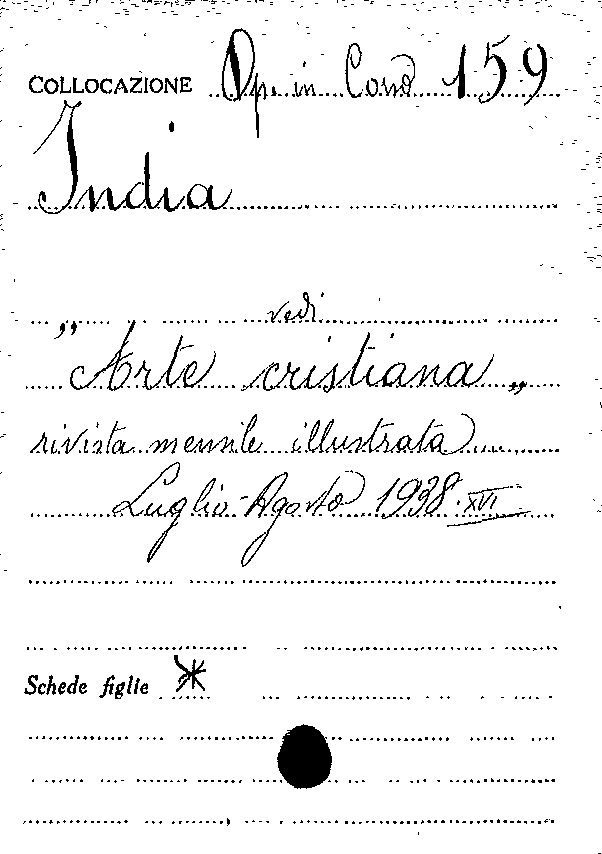 COLLOCAZIONE Op. in Cons 159
India
vedi
"Arte cristiana"
rivista mensile illustrata
Luglio-Agosto 1938.XVI
Schede figlie *